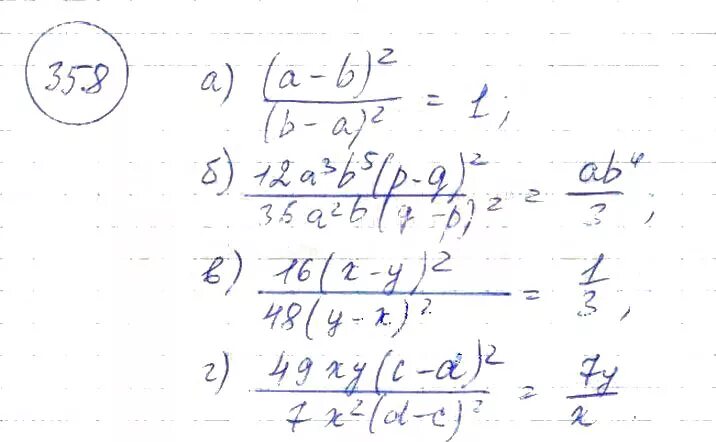 358
а) (a-b)² / (b-a)² = 1;
б) 12a³b⁵(p-q)² / 36a²b(q-p)² = ab⁴ / 3;
в) 16(x-y)² / 48(y-x)² = 1 / 3;
г) 49xy(c-d)² / 7x²(d-c)² = 7y / x